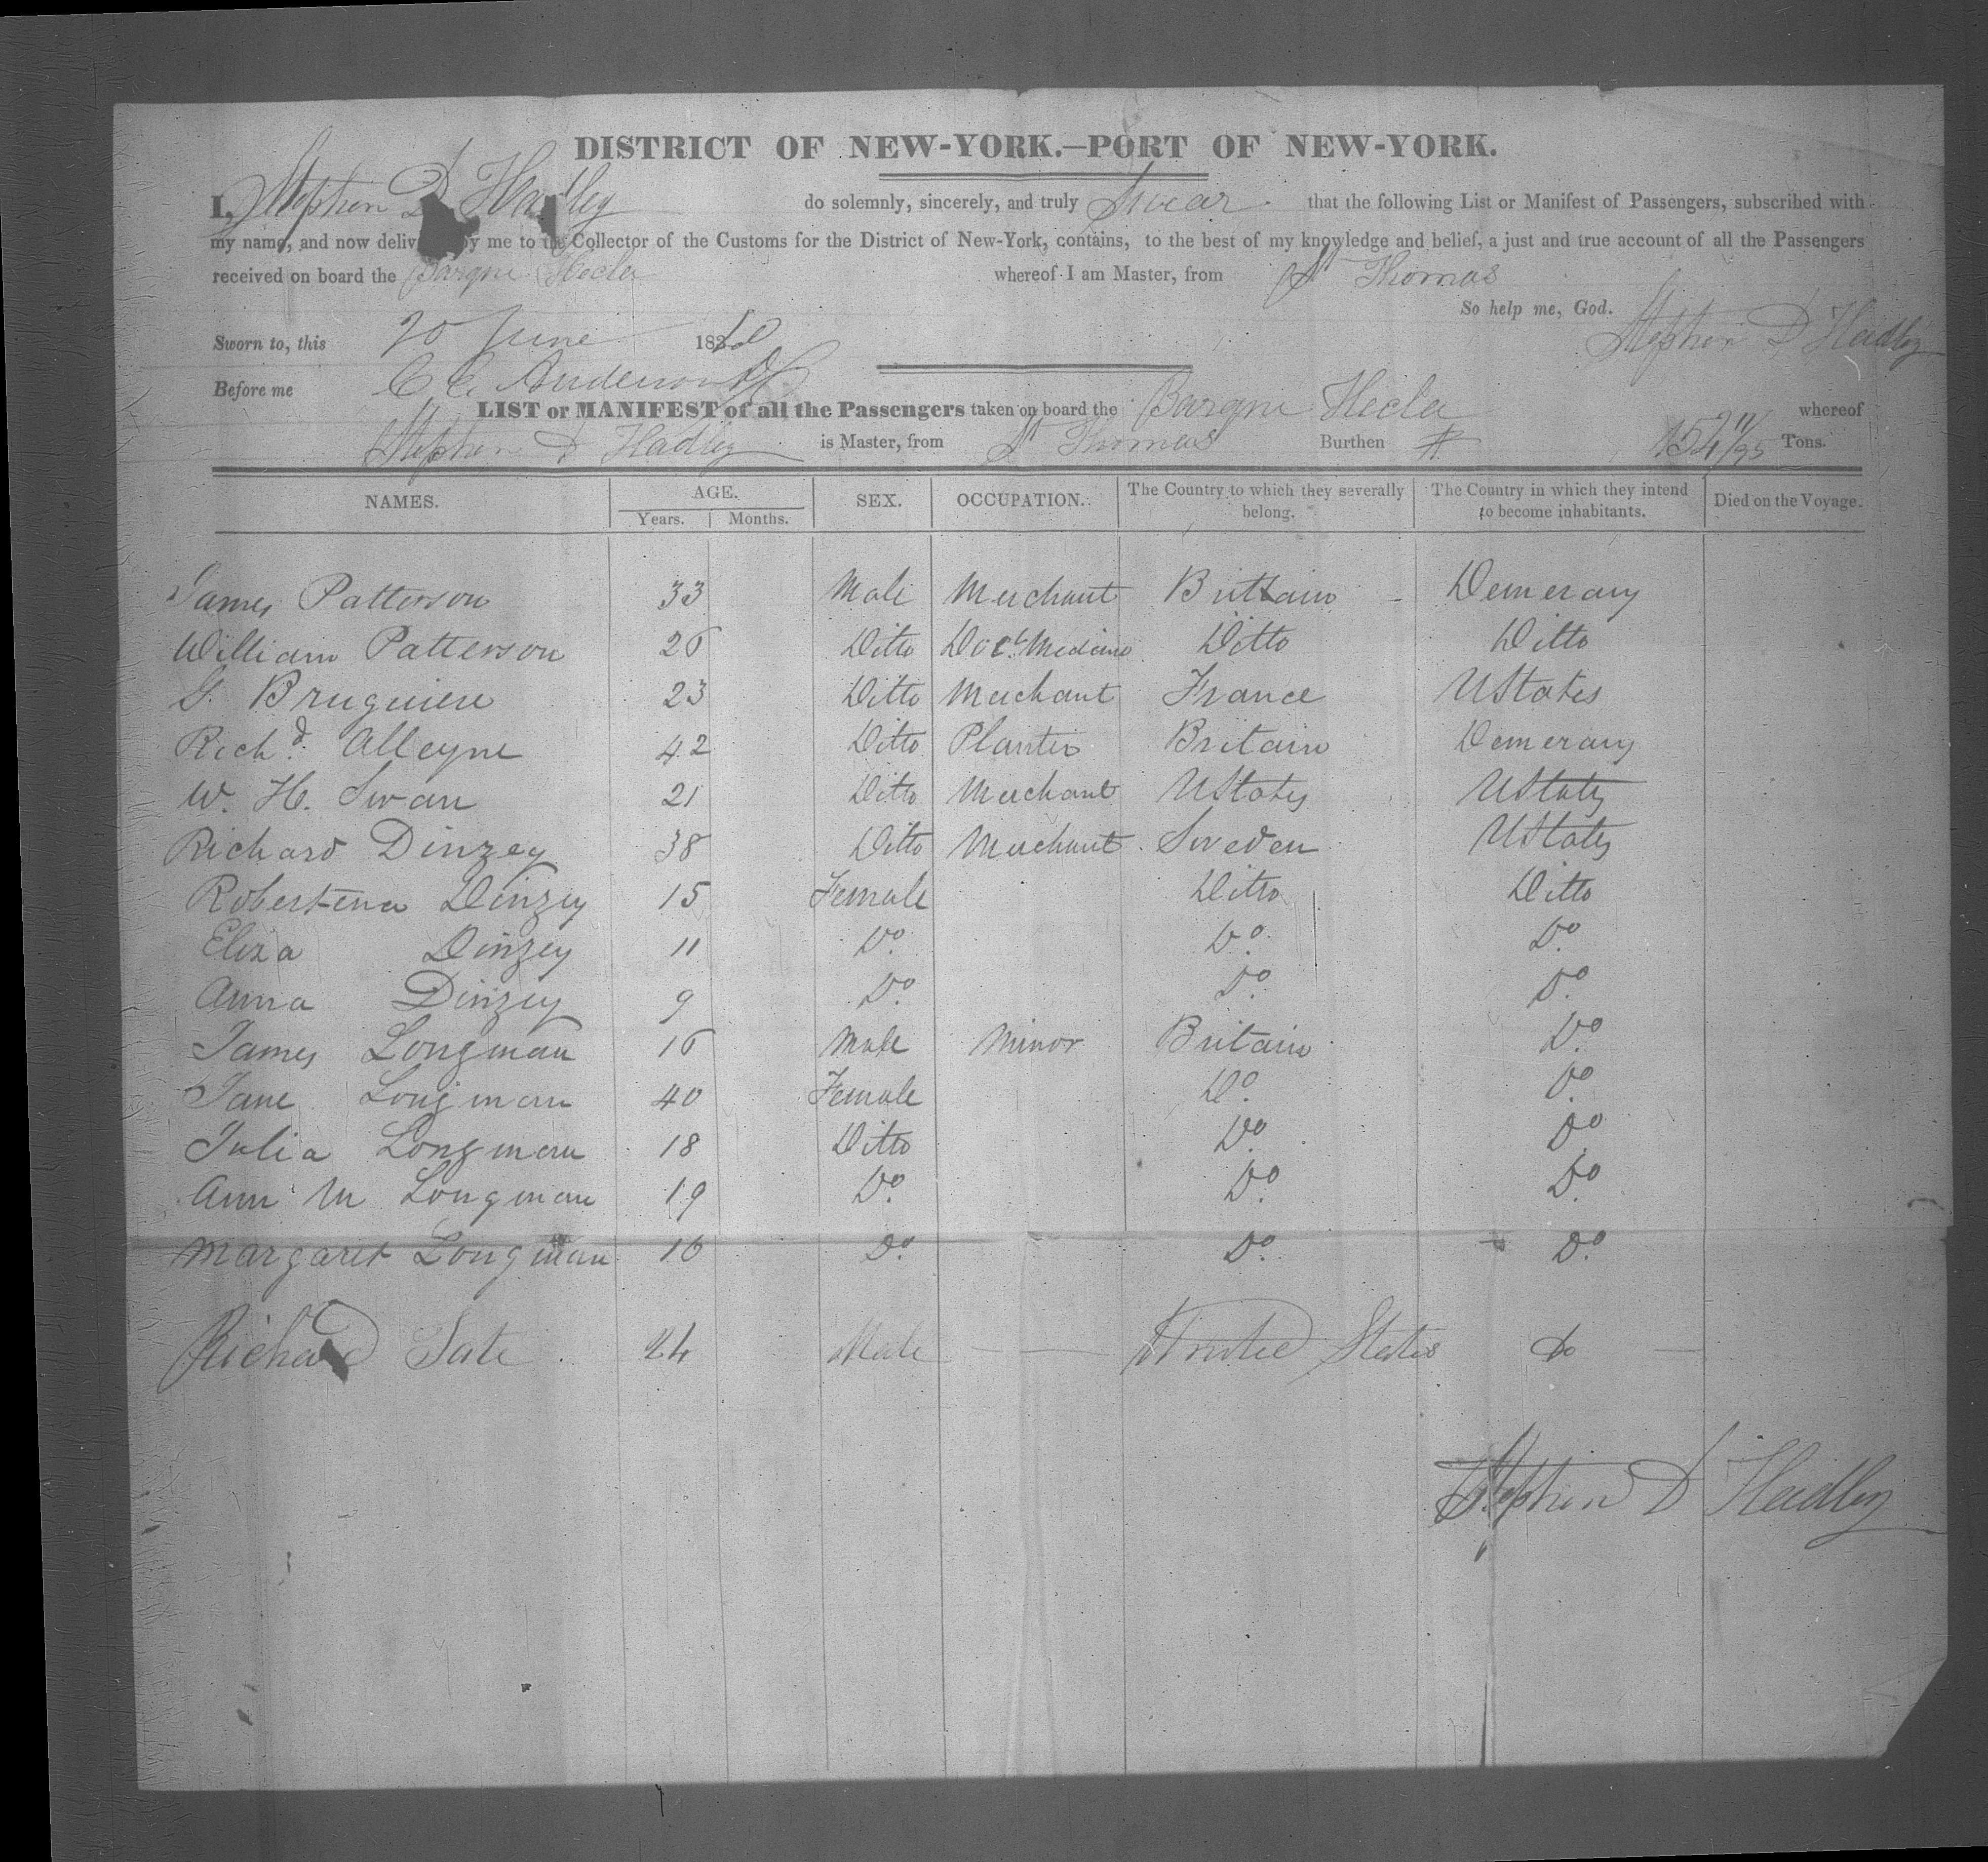 DISTRICT OF NEW-YORK.—PORT OF NEW-YORK.
I, Stephen D Hadley do solemnly, sincerely, and truly Swear that the following List or Manifest of Passengers, subscribed with
my name, and now deliv by me to the Collector of the Customs for the District of New-York, contains, to the best of my knowledge and belief, a just and true account of all the Passengers
received on board the Barque Hecla whereof I am Master, from St Thomas
So help me, God.
Stephen D Hadley
Sworn to, this 20 June 1840
Before me C C Anderson
LIST or MANIFEST of all the Passengers taken on board the Barque Hecla whereof
Stephen D Hadley is Master, from St Thomas Burthen 154 11/95 Tons.
NAMES. AGE. SEX. OCCUPATION. The Country to which they severally belong. The Country in which they intend to become inhabitants. Died on the Voyage.
Years. Months.
James Patterson 33 Male Merchant Brittain Demerary
William Patterson 26 Ditto Doct. Medicine Ditto Ditto
G. Bruguiere 23 Ditto Merchant France UStates
Richd. Alleyne 42 Ditto Planter Britain Demerary
W. H. Swan 21 Ditto Merchant UStates UStates
Richard Dinzey 38 Ditto Merchant Sweden UStates
Robertena Dinzey 15 Female Ditto Ditto
Eliza Dinzey 11 Do. Do. Do.
Anna Dinzey 9 Do. Do. Do.
James Longman 16 Male Minor Britain Do.
Jane Longman 40 Female Do. Do.
Julia Longman 18 Ditto Do. Do.
Ann M Longman 19 Do. Do. Do.
Margaret Longman 16 Do. Do. Do.
Richard Tate 24 Male United States do
Stephen D Hadley